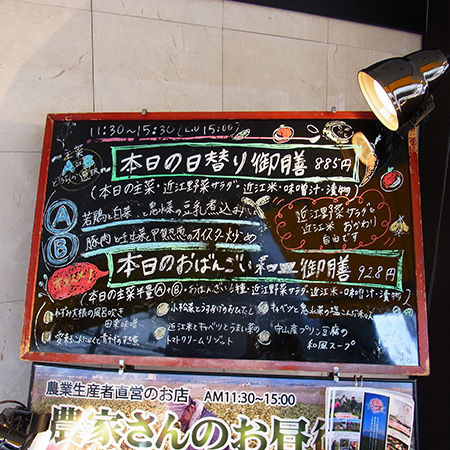 11:30〜15:30(L.O 15:00)
主菜
AorB
本日の日替り御膳 885円
(本日の主菜・近江野菜サラダ・近江米・味噌汁・漬物)
A 若鶏と白菜
の豆乳煮込み
B 豚肉と壬生菜と
のオイスター炒め
近江野菜サラダと
近江米 おかわり
自由です
本日のおばんざい
御膳 928円
(本日の主菜半量A+B・おばんざい
種・近江野菜サラダ・近江米・味噌汁・漬物)
大根の風呂吹き
小松菜とうすあげの
キャベツと
近江米とキャベツと
の
トマトクリームリゾット
守山産プリン豆腐の
和風スープ
農業生産者直営のお店 AM11:30〜15:00
農家さんのお昼